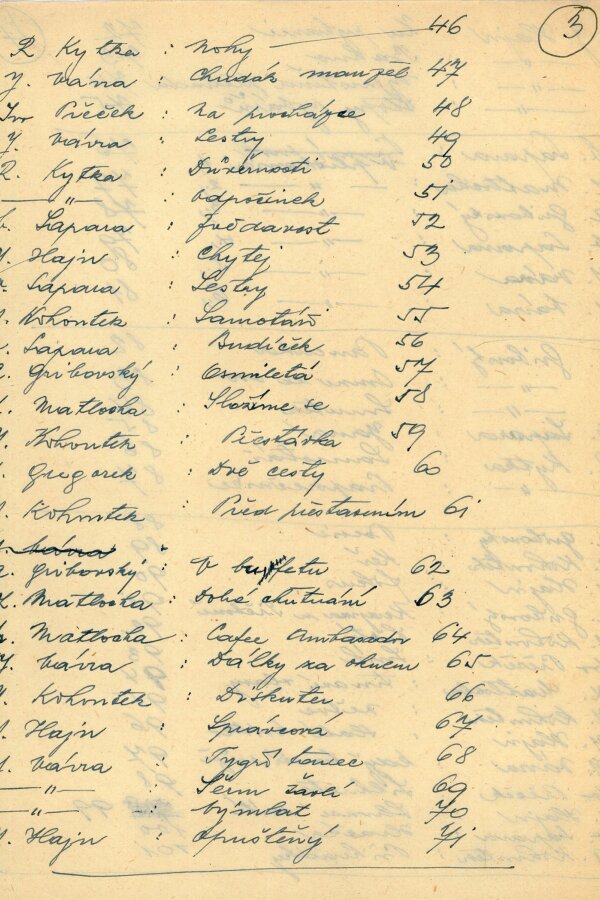 5
R Kytka : Nohy 46
J. Vávra : Chudák manžel 47
Píčček : Na procházce 48
J. Vávra : Sestry 49
R. Kytka : Důvěrnosti 50
—"— odpočinek 51
Sapara : Zvědavost 52
Hajn : Chytej 53
Sapara : Sestry 54
Kohoutek : Samotáři 55
Sapara : Budíček 56
Gribovský : Osmiletá 57
Matlocha : Složíme se 58
Kohoutek : Přestávka 59
Gregorek : Dvě cesty 60
Kohoutek : Před přistavením 61
Vávra
Gribovský : V bufetu 62
Matlocha : Dobé chutnání 63
Matlocha : Cafee Ambasador 64
J. Vávra : Dálky za oknem 65
Kohoutek : Diskuter 66
Hajn : Správcová 67
Vávra : Tygří tanec 68
—"— : Šerm 69
—"— : Výmlat 70
Hajn : Opuštěný 71